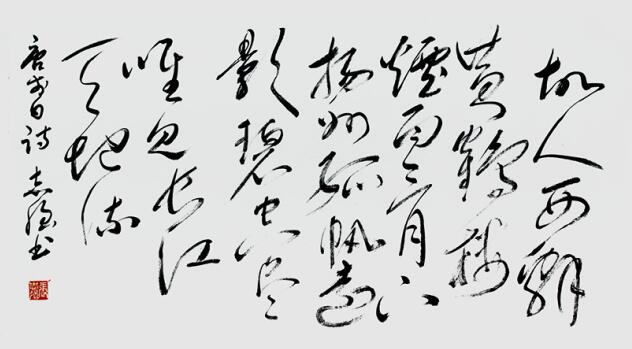 故人西辭
黄鶴樓
煙花三月下
揚州孤帆遠
影碧空盡
唯見長江
天際流
唐李白詩 志強書